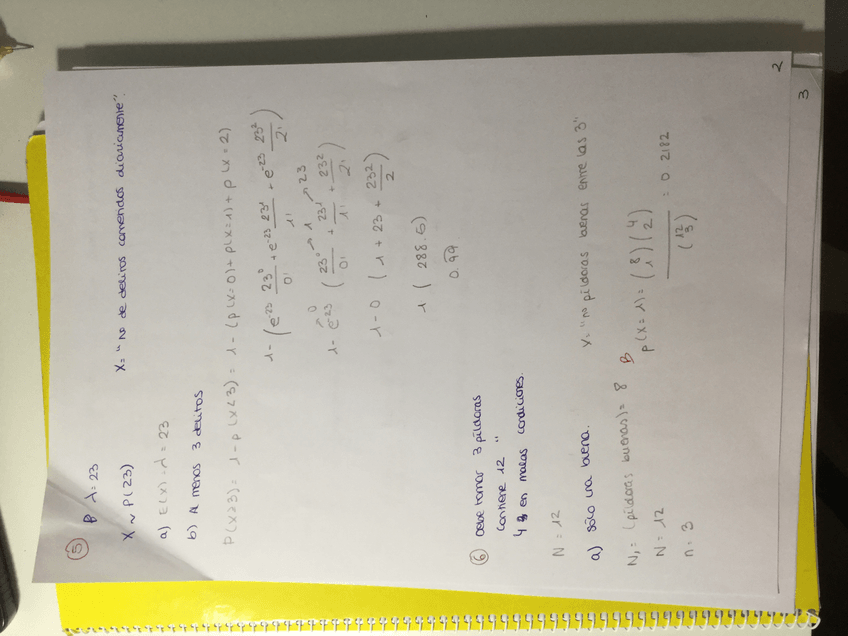 ⑤ B λ = 23
X ~ P(23)
X = "nº de delitos comendos diariamente".
a) E(X) = λ = 23
b) A menos 3 delitos
P(X≥3) = 1 - P(X<3) = 1 - (P(X=0) + P(X=1) + P(X=2)
1 - (e⁻²³ 23⁰/0! + e⁻²³ 23¹/1! + e⁻²³ 23²/2!)
0 1 23
1 - e⁻²³ (23⁰/0! + 23¹/1! + 23²/2!)
1 - 0 (1 + 23 + 23²/2)
1 (288.5)
0.99
⑥ Debe tomar 3 píldoras
contiene 12 "
4 en malas condiciones.
N = 12
a) sólo una buena.
X = "nº píldoras buenas entre las 3"
N₁ = (píldoras buenas) = 8 B
N = 12
n = 3
P(X = 1) = (8 1)(4 2) / (12 3) = 0.2182
2
3